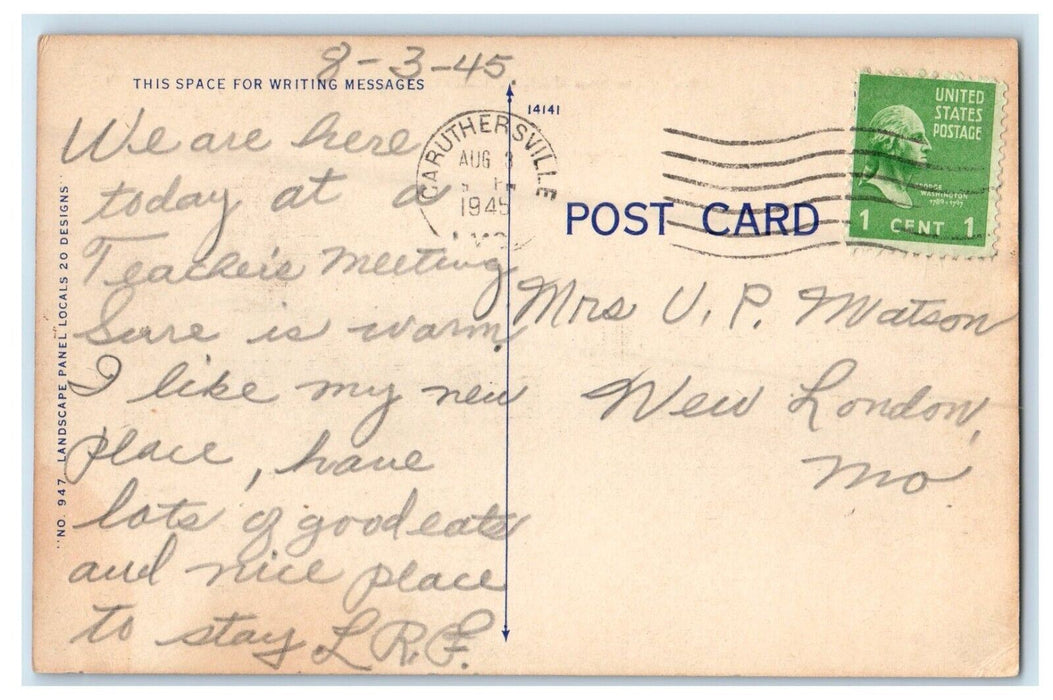 8-3-45.
THIS SPACE FOR WRITING MESSAGES
We are here
today at a
Teacher's meeting
Sure is warm.
I like my new
place, have
lots of good eats
and nice place
to stay L.R.F.
"NO. 947 LANDSCAPE PANEL LOCALS 20 DESIGNS"
14141
CARUTHERSVILLE
AUG 3
1945
POST CARD
UNITED
STATES
POSTAGE
GEORGE
WASHINGTON
1789-1797
1 CENT 1
Mrs U. P. Matson
New London,
Mo